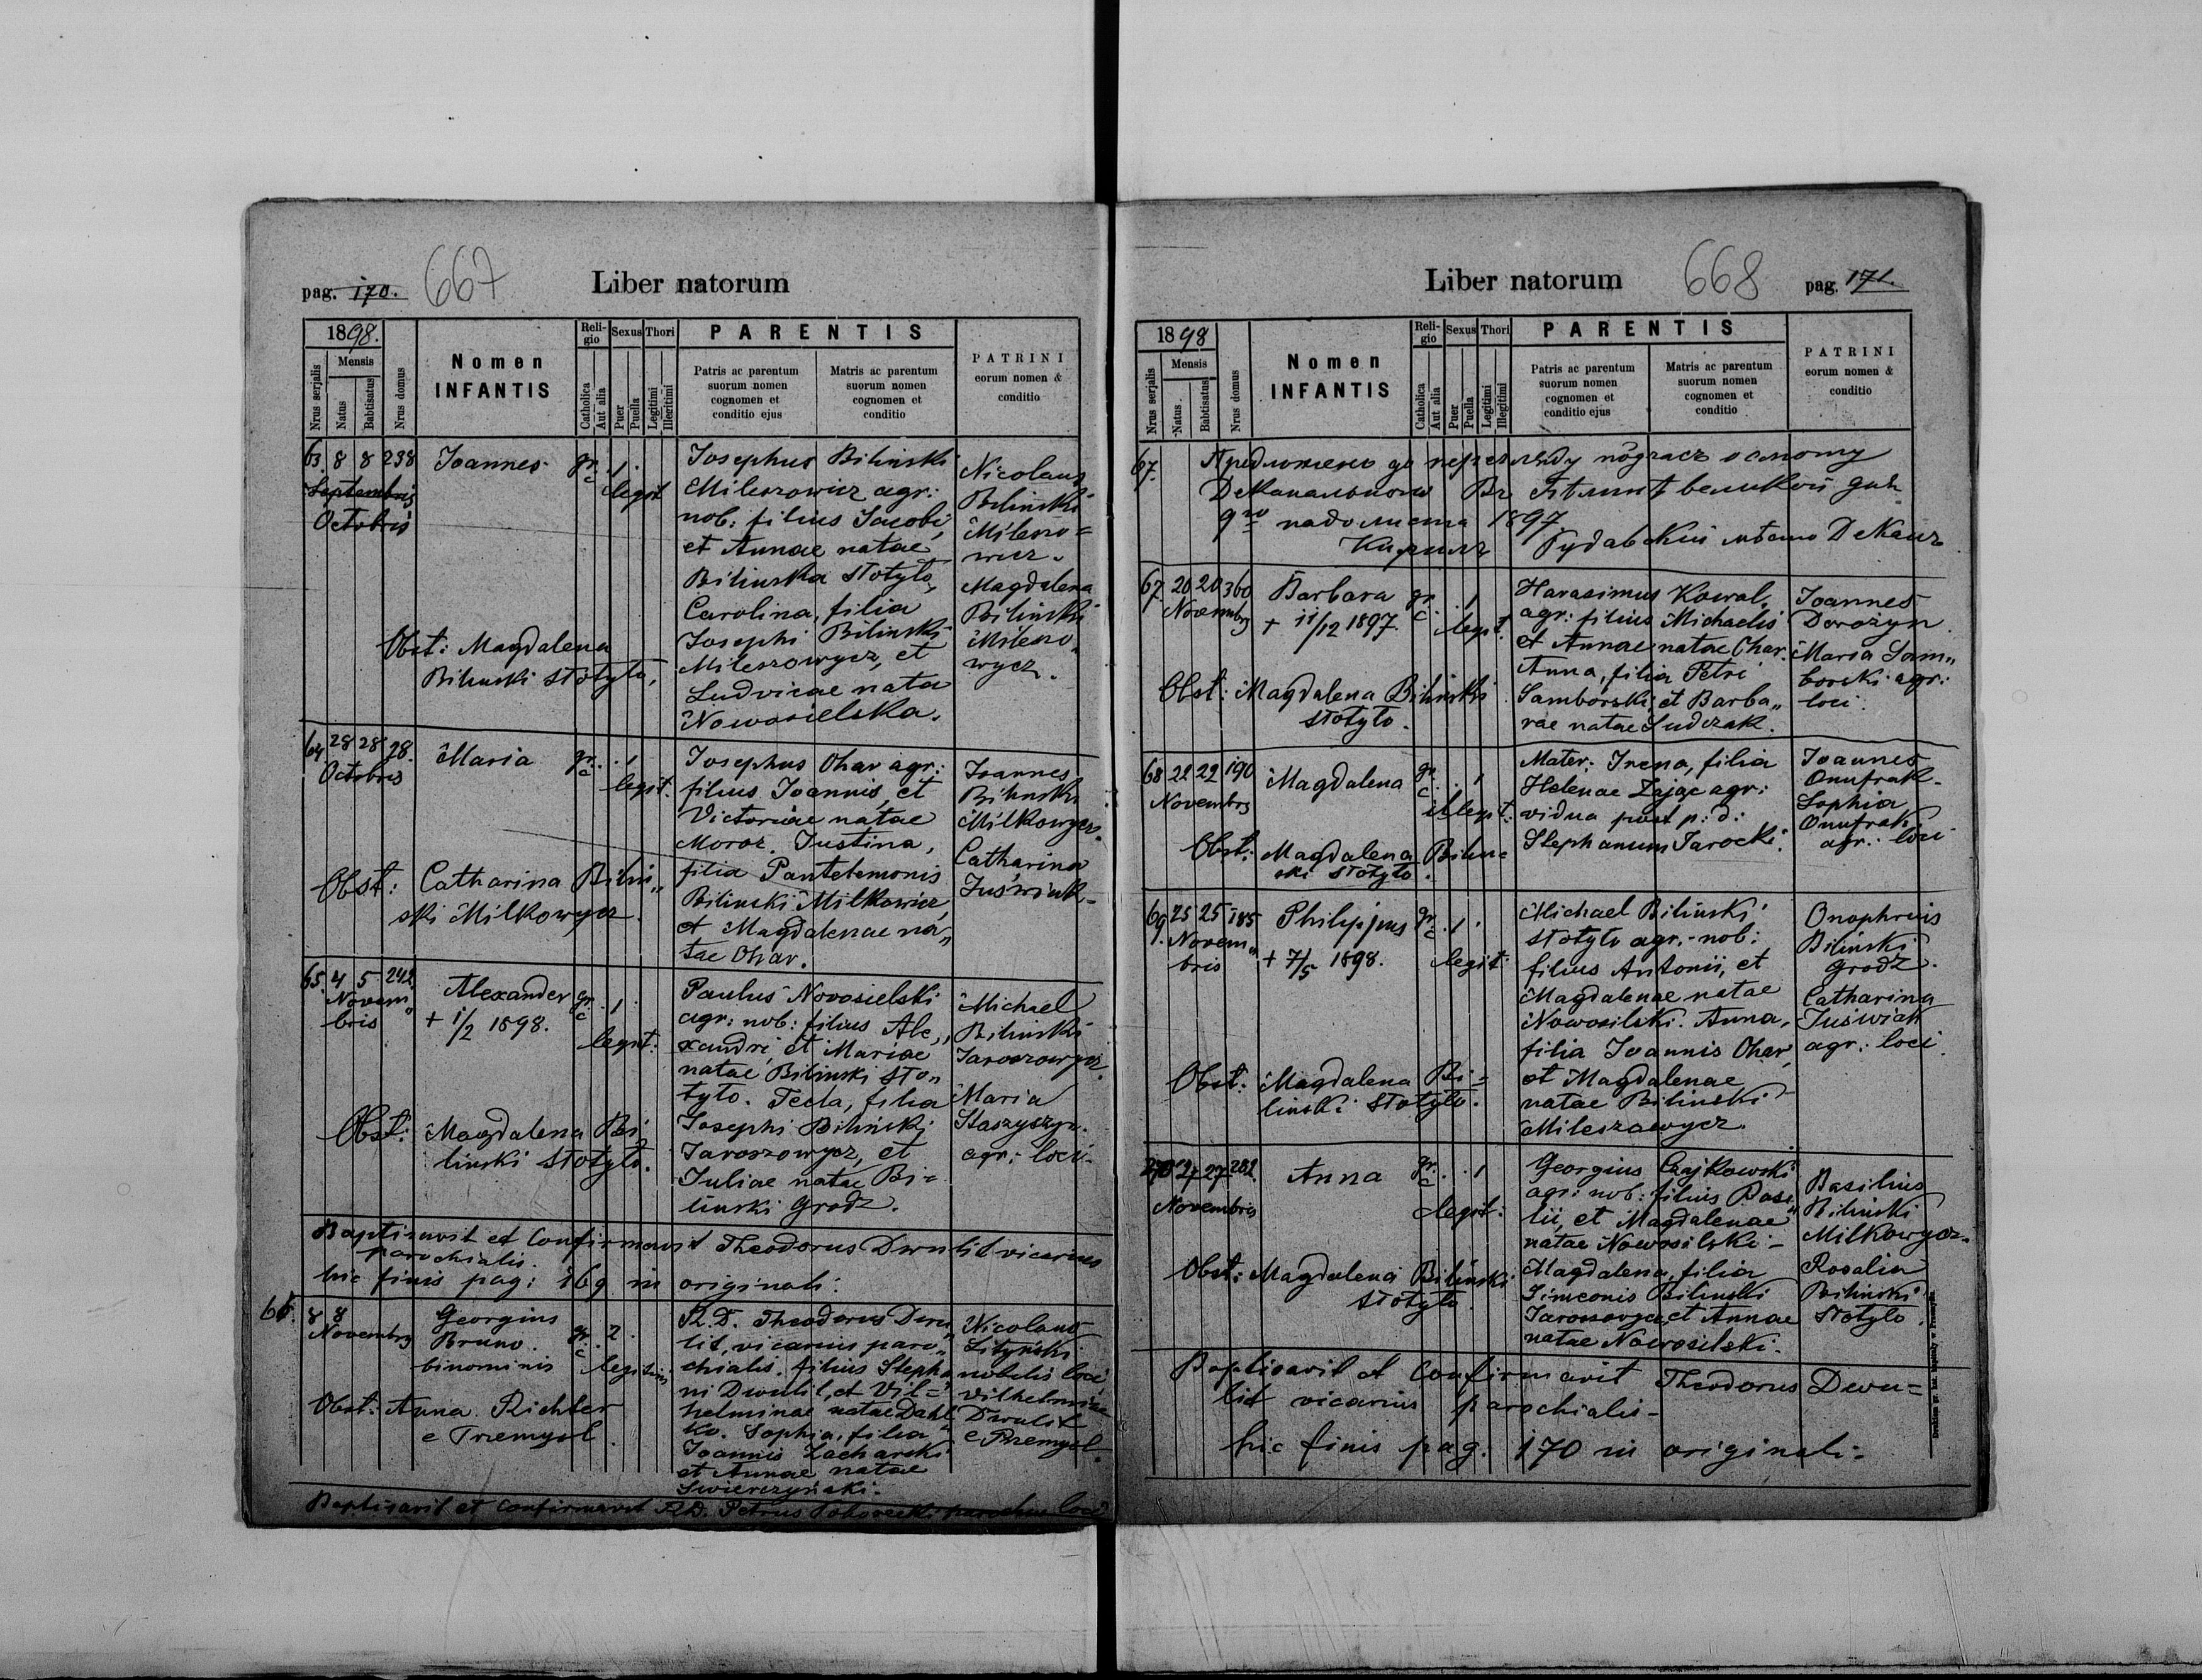 pag. 170. 667 Liber natorum
1898.
Nrus serjalis
Mensis
Natus
Babtisatus
Nrus domus
Nomen
INFANTIS
Religio
Catholica
Aut alia
Sexus
Puer
Puella
Thori
Legitimi
Illegitimi
PARENTIS
Patris ac parentum
suorum nomen
cognomen et
conditio ejus
Matris ac parentum
suorum nomen
cognomen et
conditio
PATRINI
eorum nomen &
conditio
63. 8 8 238
Septembris
Octobris
Joannes
gr. c
1
legit
Josephus Bilinski
Mileszowicz agr:
nob: filius Jacobi,
et Annae natae
Bilinska Stotylo,
Carolina, filia
Josephi Bilinski
Mileszowycz, et
Ludvicae nata
Nowosielska.
Nicolaus
Bilinski
Mileszo=
wicz.
Magdalena
Bilinski
Mileszo-
wycz.
Obst: Magdalena
Bilinski Stotylo,
64. 28 28 28.
Octobris
Maria
gr. c
1
legit.
Josephus Ohar agr:
filius Joannis, et
Victoriae natae
Moroz. Justina,
filia Pantelemonis
Bilinski Milkowicz,
et Magdalenae na„
tae Ohar.
Joannes
Bilinski
Milkowycz.
Catharina
Juświak
Obst: Catharina Bilin„
ski Milkowycz.
65. 4 5 242
Novem„
bris
Alexander
+ 1/2 1898.
gr. c
1
legit:
Paulus Novosielski
agr: nob: filius Ale„
xandri, et Mariae
natae Bilinski Sto„
tylo. Tecla, filia
Josephi Bilinski
Jaroszowycz, et
Juliae natae Bi=
linski Grodz.
Michael
Bilinski
Jaroszowycz.
Maria
Staszyszyn.
agr: loci
Obst: Magdalena Bi
linski Stotylo.
Baptisavit et Confirmavit Theodorus Dwulit vicarius
parochialis.
hic finis pag: 169 in originali.
66. 8 8
Novembrs
Georgius
Bruno.
binominis
gr. c
2
legitim
R. D. Theodorus Dwu„
lit, vicarius paro„
chialis. filius Stepha
ni Dwulit, et Vil=
helminae natae Dahl
ko. Sophia, filia
Joannis Zacharski
et Annae natae
Swierczyński.
Nicolaus
Lityński
nobilis loci
Vilhelmina
Dwulit
e Przemysl.
Obst: Anna Richter
e Przemysl.
Baptisavit et Confirmavit R.D. Petrus parochus loci
Liber natorum 668 pag. 171.
1898
Nrus serjalis
Mensis
Natus
Babtisatus
Nrus domus
Nomen
INFANTIS
Religio
Catholica
Aut alia
Sexus
Puer
Puella
Thori
Legitimi
Illegitimi
PARENTIS
Patris ac parentum
suorum nomen
cognomen et
conditio ejus
Matris ac parentum
suorum nomen
cognomen et
conditio
PATRINI
eorum nomen &
conditio
67.
Деканальному великой
9го падолиста 1897
Кирилъ Деканъ
67. 20 20 360
Novembrs
Barbara
+ 11/12 1897.
gr. c
1
legit.
Harasimus Kowal,
agr: filius Michaelis
et Annae natae Ohar.
Anna, filia Petri
Samborski, et Barba„
rae natae Sudczak.
Joannes
Dorożyn.
Maria Sam„
borski agr:
loci.
Obst: Magdalena Bilinski
Stotylo.
68 22 22 190
Novembrs
Magdalena
gr. c
1
illegit:
Mater: Irena, filia
Helenae Zając agr:
vidua post p: d:
Stephanum Jarocki.
Joannes
Onufrak
Sophia
Onufrak
agr: loci
Obst: Magdalena Bilin=
ski Stotylo.
69. 25 25 185
Novem„
bris
Philippus
+ 7/5 1898.
gr. c
1
legit:
Michael Bilinski
Stotylo agr.-nob:
filius Antonii, et
Magdalenae natae
Nowosilski. Anna,
filia Joannis Ohar,
et Magdalenae
natae Bilinski
Mileszowycz.
Onophrius
Bilinski
Grodz.
Catharina
Juświak
agr: loci
Obst: Magdalena Bi=
linski Stotylo.
70 27 27 282.
Novembris
Anna
gr. c
1
legit:
Georgius Czajkowski
agr: nob: filius Basi„
lii, et Magdalenae
natae Nowosilski-
Magdalena, filia
Simeonis Bilinski
Jaroszowycz, et Annae
natae Nowosilski.
Basilius
Bilinski
Milkowycz.
Rosalia
Bilinski
Stotylo.
Obst: Magdalena Bilinski
Stotylo
Baptisavit et Confirmavit Theodorus Dwu=
lit vicarius parochialis-
hic finis pag. 170 in originali.